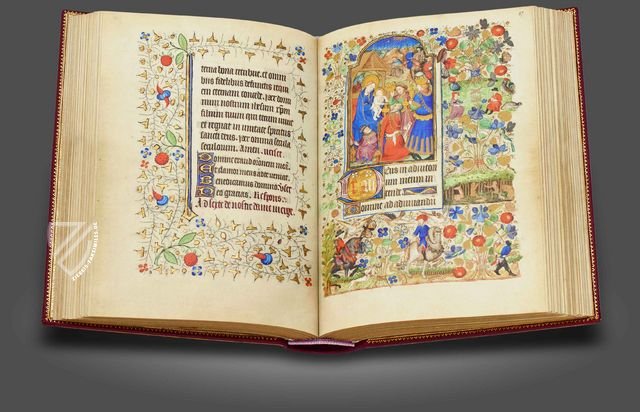 terna dona recubue. et omni
bus fidelibus defunctis requi
em eternam concede. per dom
num nostrum ihesum xpm
filium tuum qui tecum viuit
et regnat in vnitate spiritus
sancti deus. per omnia secula
seculorum. Amen. verset
Domine exaudi orationem mea
Et clamor meus ad te veniat.
Benedicamus domino. Vset
Deo gracias. Respons.
A sexte de nostre dame vierge.
Deus in adiutori
um meum in
tende
Domine ad adiuuandū